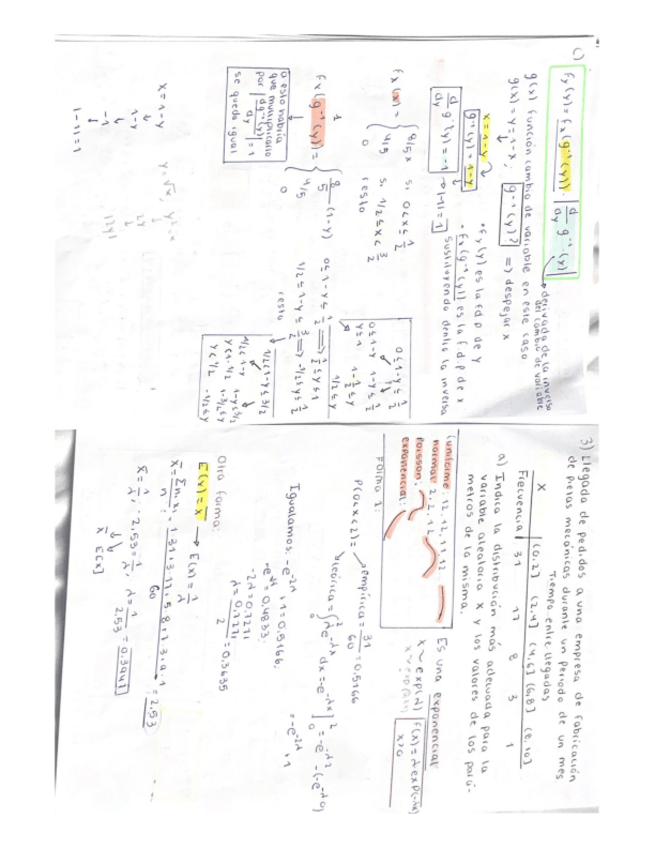 c)
fy(y) = fx(g⁻¹(y)) · |d/dy g⁻¹(y)|
derivada de la inversa
del cambio de variable
g(x) función cambio de variable en este caso
g(x) = y = 1-x ; g⁻¹(y)? => despejar x
x = 1-y
g⁻¹(y) = 1-y
d/dy g⁻¹(y) = -1 → |-1| = 1
• fy(y) es la fdp de y
• fx(g⁻¹(y)) es la fdp de x
sustituyendo dentro la inversa
fx(x) = { 8/5 x si 0<x≤1/2
4/5 si 1/2≤x<3/2
0 resto
fx(g⁻¹(y)) = { 8/5 (1-y) 0≤1-y≤1/2 => 1/2≤y≤1
4/5 1/2≤1-y≤3/2 => -1/2≤y≤1/2
0 resto
0≤1-y≤1/2
0≤1-y 1-y≤1/2
y≤1 1-1/2≤y
1/2≤y
1/2≤1-y≤3/2
1/2≤1-y 1-y≤3/2
y≤1-1/2 1-3/2≤y
y≤1/2 -1/2≤y
que multiplicarlo
por |dg⁻¹(y)/dy| = 1
se queda igual
x = 1-y
1-y
-1
|-1| = 1
3) Llegada de pedidos a una empresa de fabricación
de piezas mecánicas durante un periodo de un mes
Tiempo entre llegadas
X (0,2] (2,4] (4,6] (6,8] (8,10]
Frecuencia 31 17 8 3 1
a) Indica la distribución más adecuada para la
variable aleatoria X y los valores de los pará-
metros de la misma.
uniforme: 12, 12, 11, 12
normal: 2, 2, 12
poisson:
exponencial:
Es una exponencial
x ~ exp(λ) f(x) = λexp(-λx)
x>0
Forma 1:
P(0<x<2) = empírica = 31/60 = 0.5166
teórica = ∫₀² λe^-λx dx = -e^-λx]₀² = -e^-λ2 - (-e^-λ0)
= -e^-2λ + 1
Igualamos: -e^-2λ + 1 = 0.5166
-e^-2λ = -0.4833
-2λ = -0.7271
λ = 0.7271/2 = 0.3635
Otra forma:
E(x) = x̄ → E(x) = 1/λ
x̄ = Σ nᵢxᵢ/n = 1·31+3·17+5·8+7·3+9·1/60 = 2.53
x̄ = 1/λ ; 2.53 = 1/λ ; λ = 1/2.53 = 0.3947
x̄ E[x]